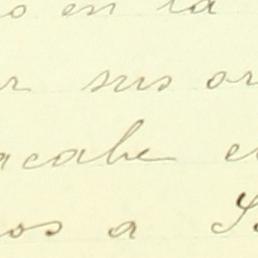 o en la
r sus or
acabe e
os a S